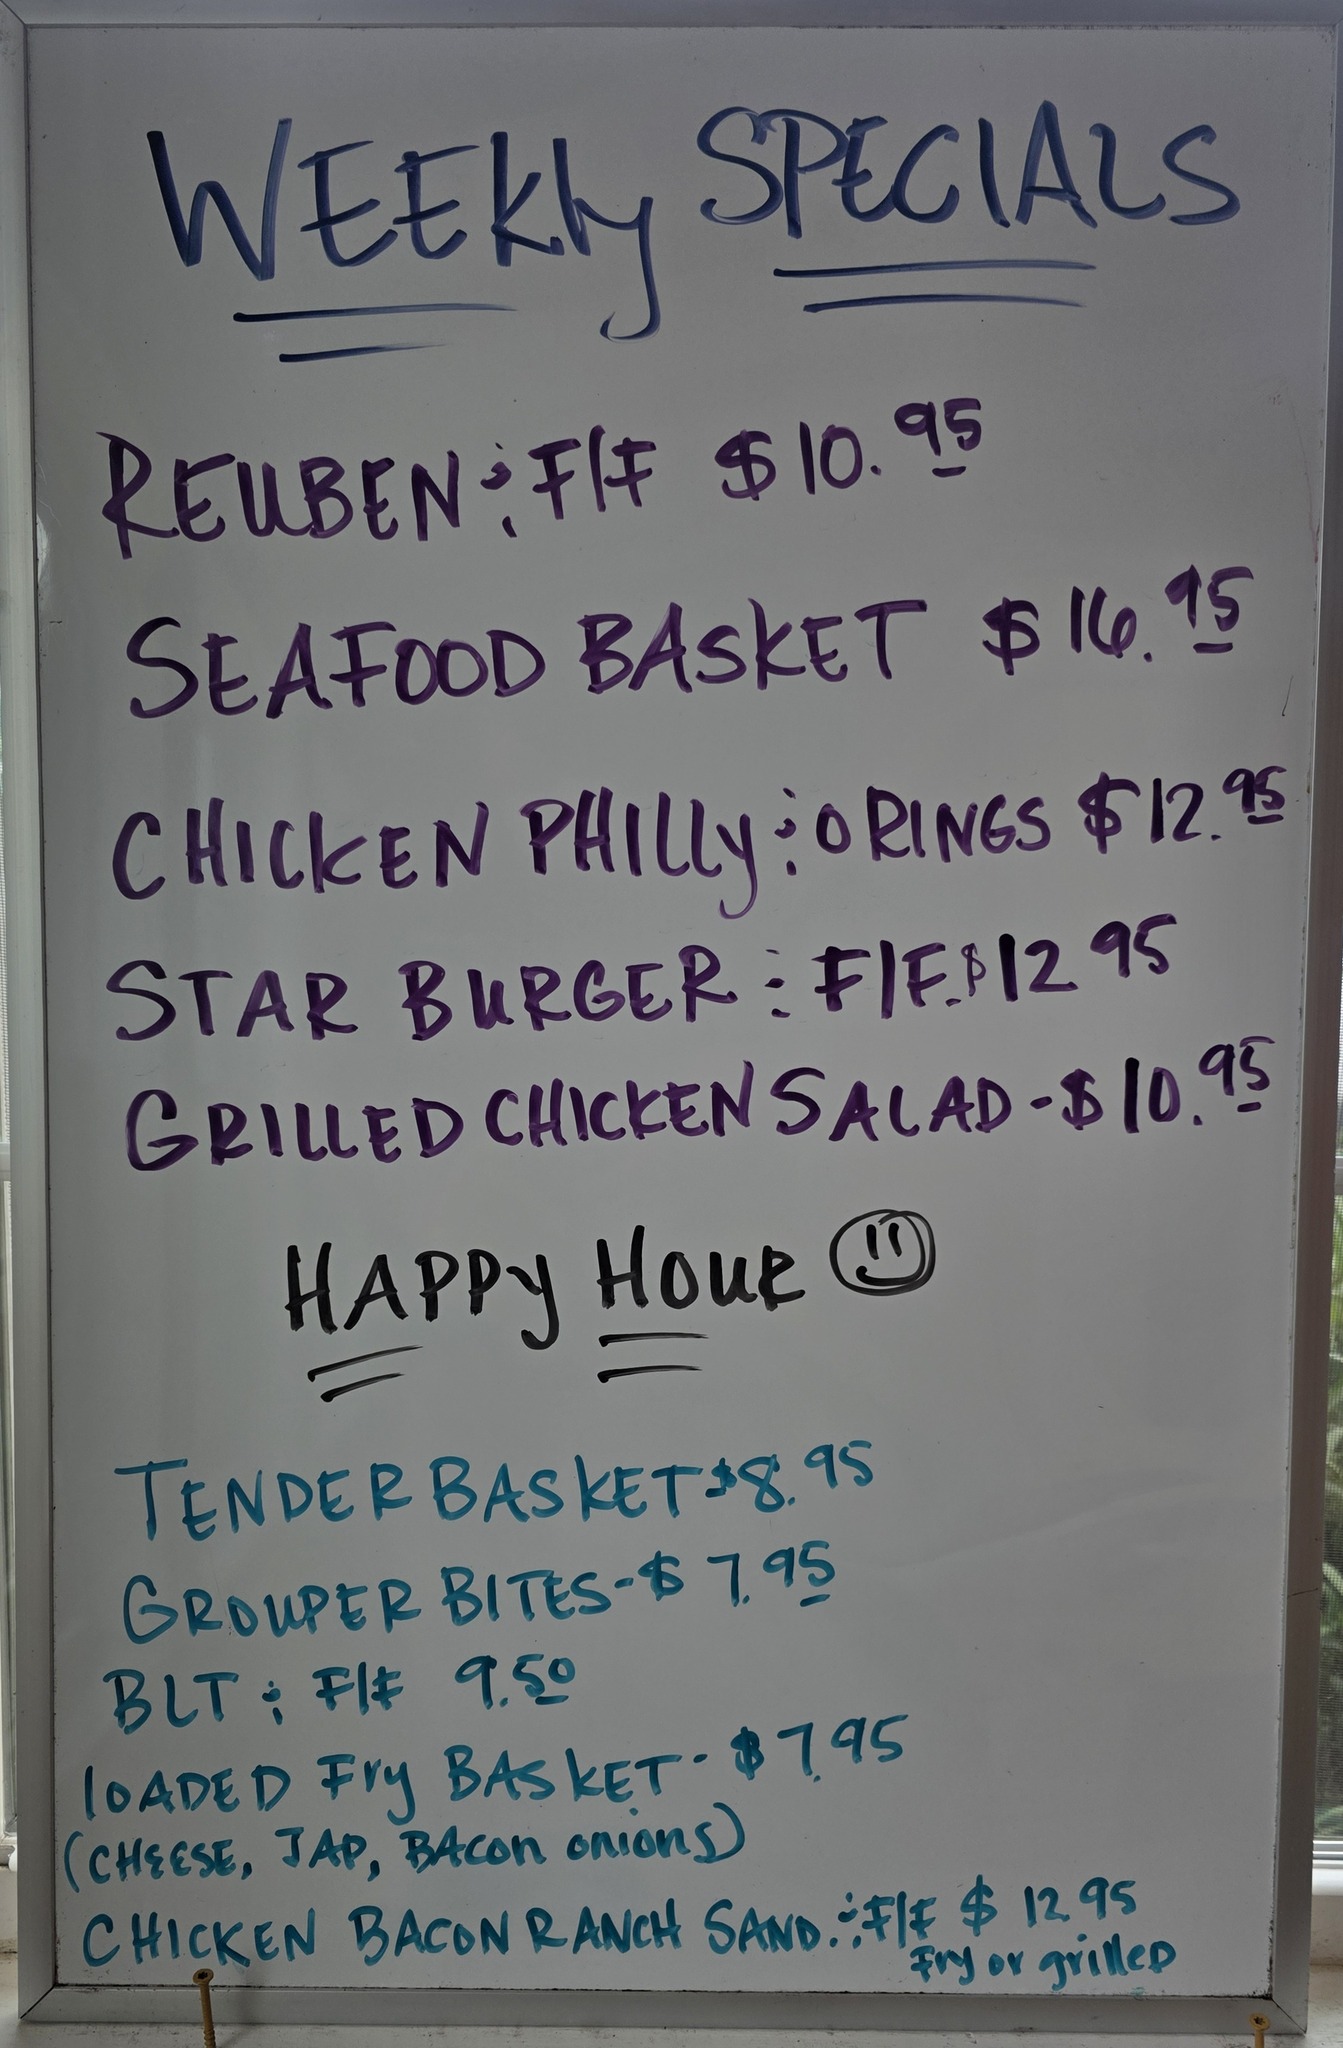 WEEKly SPECIALS
REUBEN ; F/F $10.95
SEAFOOD BASKET $16.95
CHICKEN PHILLy ; O RINGS $12.95
STAR BURGER ; F/F. $12 95
GRILLED CHICKEN SALAD - $10.95
HAPPy HOUR
TENDER BASKET - $8.95
GROUPER BITES - $7.95
BLT ; F/F 9.50
lOADED Fry BASKET - $7.95
(CHEESE, JAP, BAcon onions)
CHICKEN BACON RANCH SAND. ; F/F $12.95
Fry or grillED